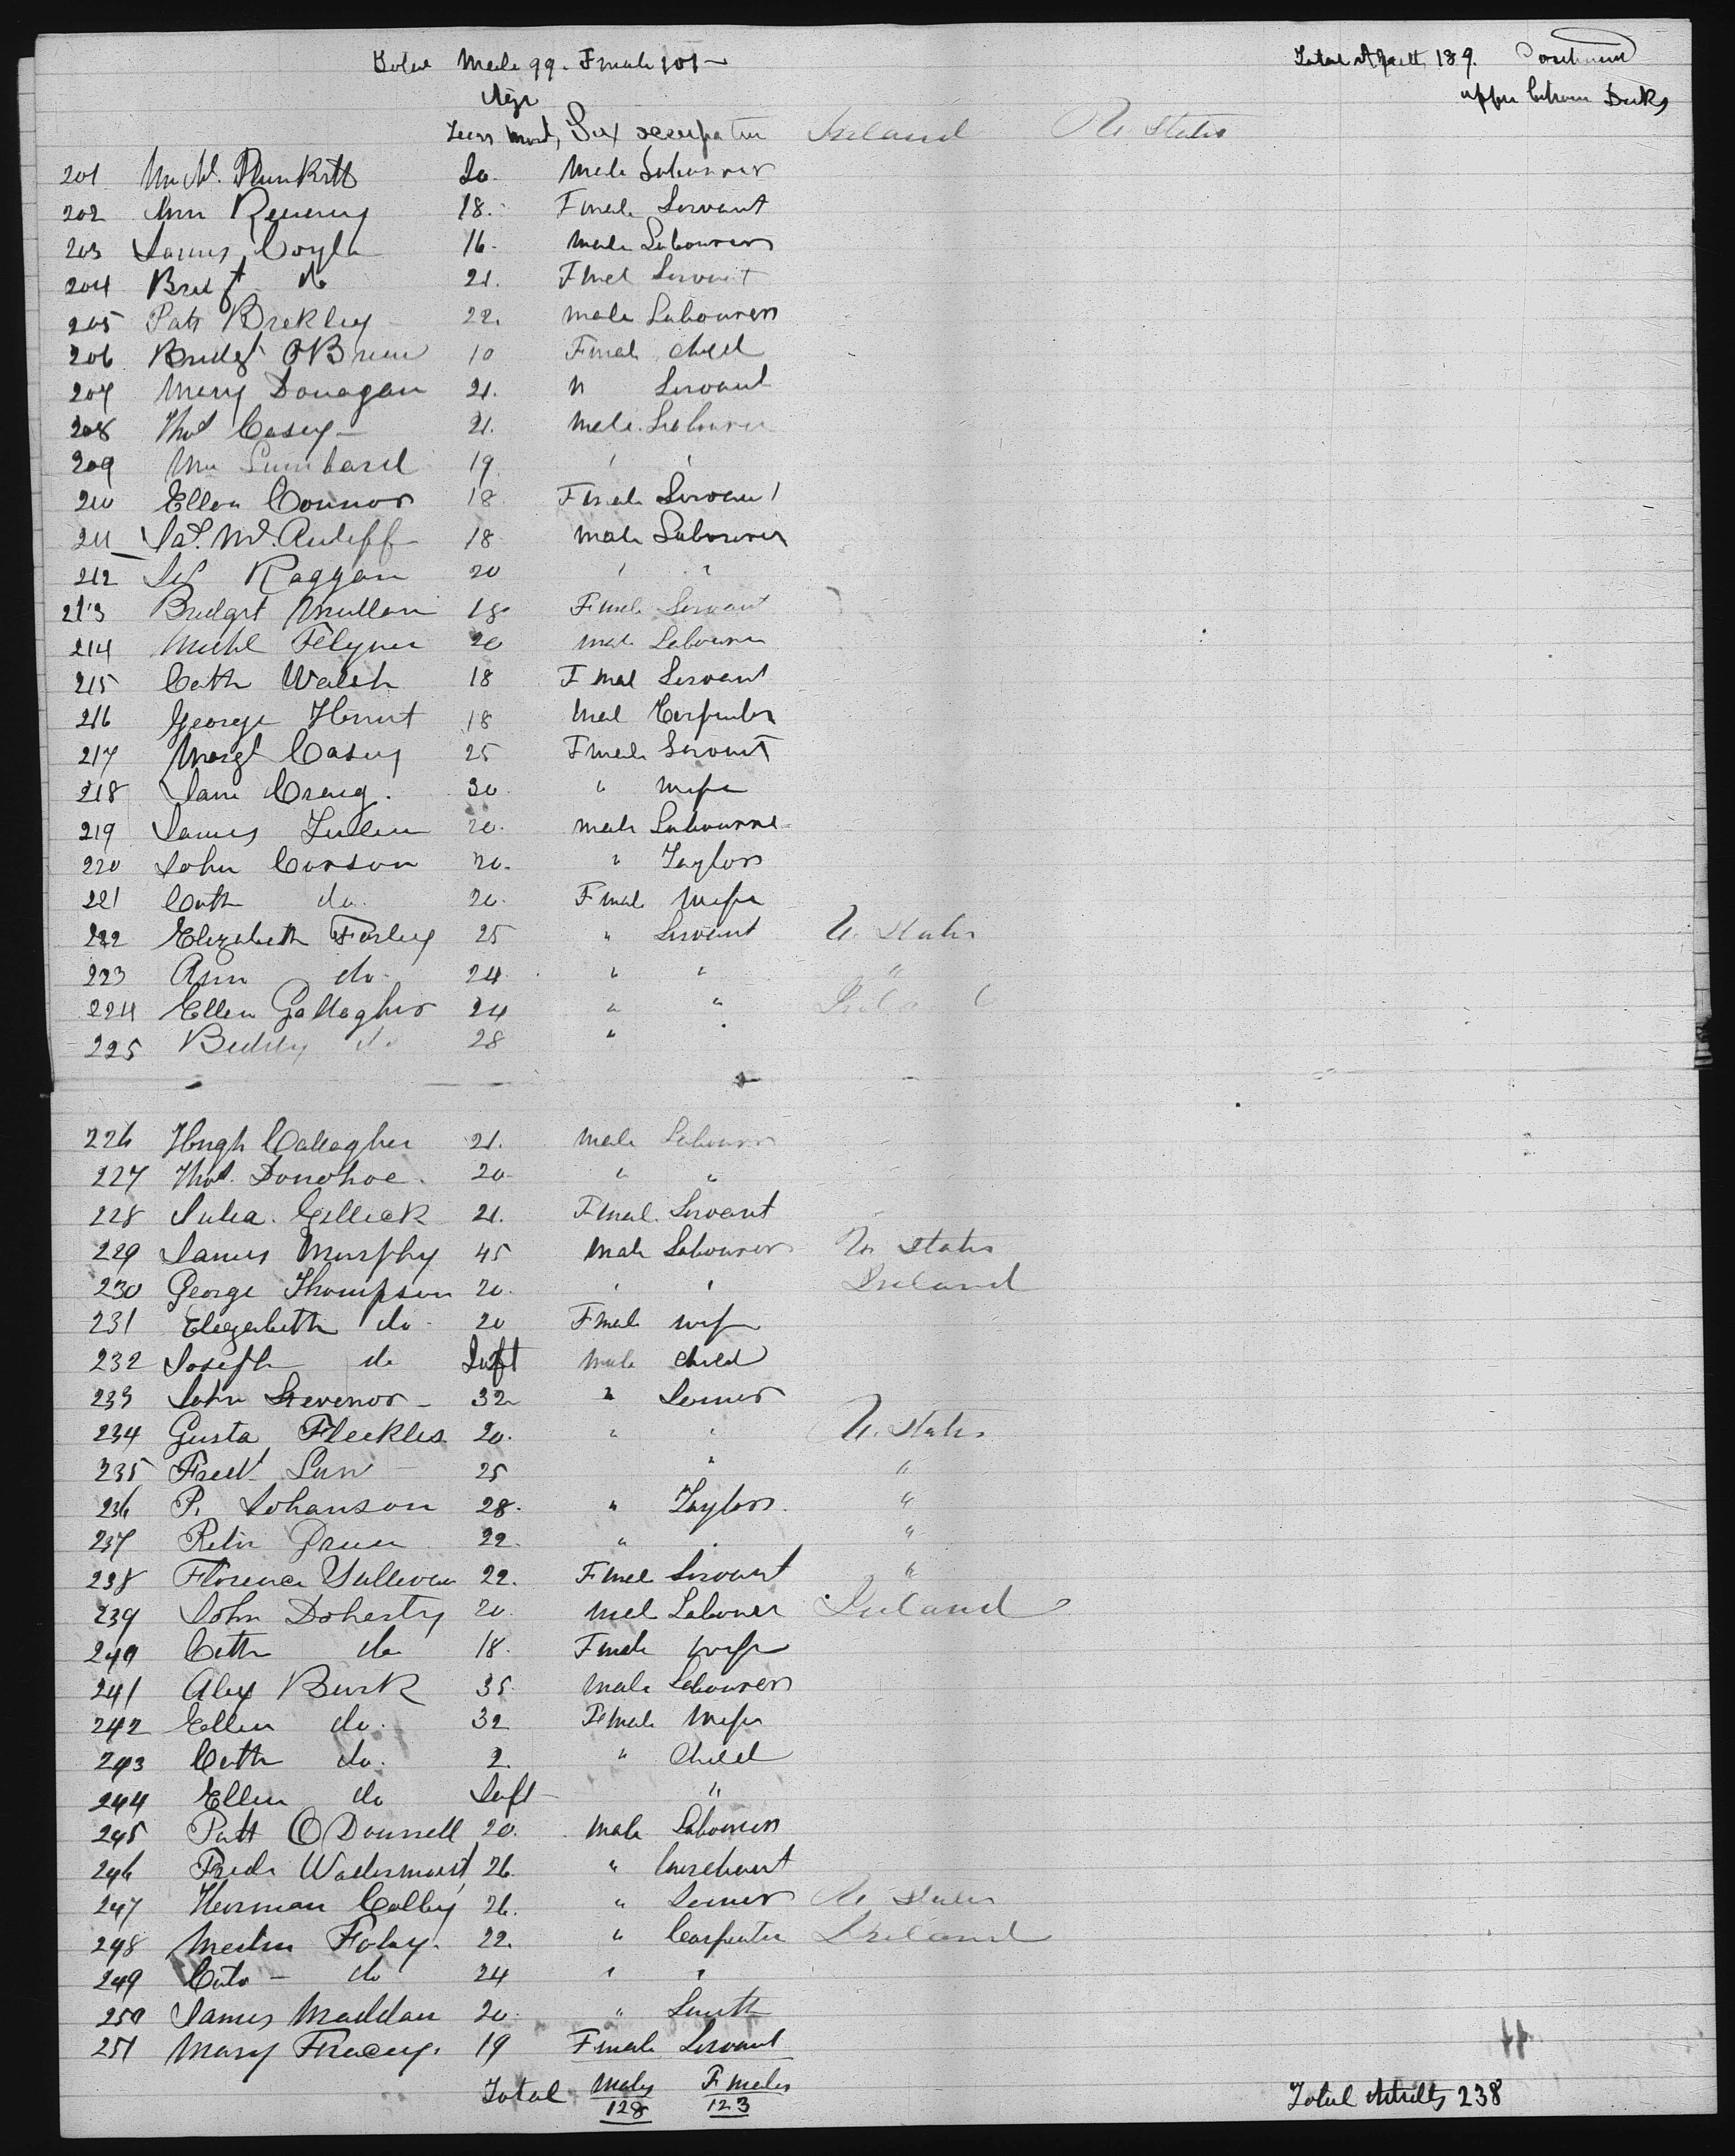 Total Male 99. Fmale 101 — Total Adult 189. Continued
Age upper Between Decks
Years Mont, Sex occupation Ireland U States
201 Plunkett 20. Male Labourer
202 Ann 18. Fmale Servant
203 James Coyle 16. Male Labourer
204 Bridgt do 21. Fmel Servant
205 Patk Brekley 22. male Labourer
206 Bridgt OBrien 10 Fmale child
207 Mary Donagan 21. " Servant
208 Thos Casey — 21. Male Labourer
209 Wm Lumbard 19 " "
210 Ellen Connor 18 Fmale Servant
211 Jas. Mc. Auliff 18 Male Labourer
212 Raggan 20 " "
213 Bridget Mullan 18 Fmale Servant
214 Michl 20 male Labourer
215 Cath Walsh 18 Fmal Servant
216 George 18 Mal Carpenter
217 Margt Casey 25 Fmale Servant
218 Jane Craig. 30. " Wife
219 James 20. male Labourer
220 John Corson 20. " Taylor
221 Cath do. 20. Fmale Wife
222 Elizabeth Farley 25 " Servant U. States
223 Ann do. 24. " " "
224 Ellen Gallagher 24 " " Ireland
225 Biddy do 28 "
226 Hugh Callagher 21. Male Labourer
227 Thos. Donohoe. 20. " "
228 Julia. Gilleck 21. Fmal. Servant
229 James Murphy 45 Male Labourer U States
230 George Thompson 20. " " Ireland
231 Elizabeth do. 20 Fmale wife
232 Joseph do Inft Male child
233 John Grevenor — 32 "
234 Gusta Fleckles 20. " " U. States
235 Fredk 25 " "
236 P. Johanson 28. " Taylor. "
237 Peter 22. " "
238 Florence Sullivan 22. Fmel Servant "
239 John Doherty 20. Mal Labourer Ireland
240 Cath do 18. Fmale wife
241 Alex Burk 35. Male Labourer
242 Ellen do. 32 Fmale Wife
243 Cath do. 2. " Child
244 Ellen do Inft — "
245 Patt O Donnell 20. Male Labourer
246 Fredk 26. " Merchant
247 Herman Colby 26. " U States
248 Martin Foley. 22. " Carpenter Ireland
249 Cath — do 24 " "
250 James Maddan 20. " Smith
251 Mary Tracey. 19 Fmale Servant
Total Males Fmales
128 123 Total Adults 238